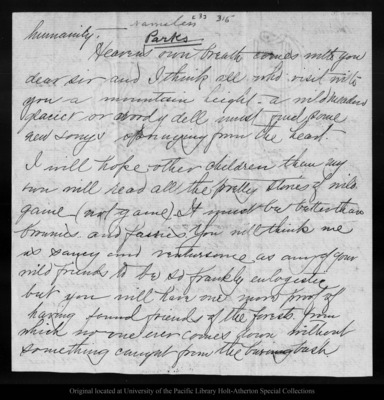 Hamelin c33 315
humanity. Parks
Heavens own breath comes with you
dear sir and I think all who visit with
you a mountain height - a wild meadow
glacier or woody dell must feel some
new songs springing from the heart.
I will hope other children than my
own will read all the pretty stories of wild
game (not game). It must be better than
brownies and fairies. You will think me
as saucy and venturesome as any of your
wild friends to be so frankly eulogistic
but you will have one more proof of
having found friends of the forest from
which no one ever comes down without
something caught from the burning bush
Original located at University of the Pacific Library Holt-Atherton Special Collections